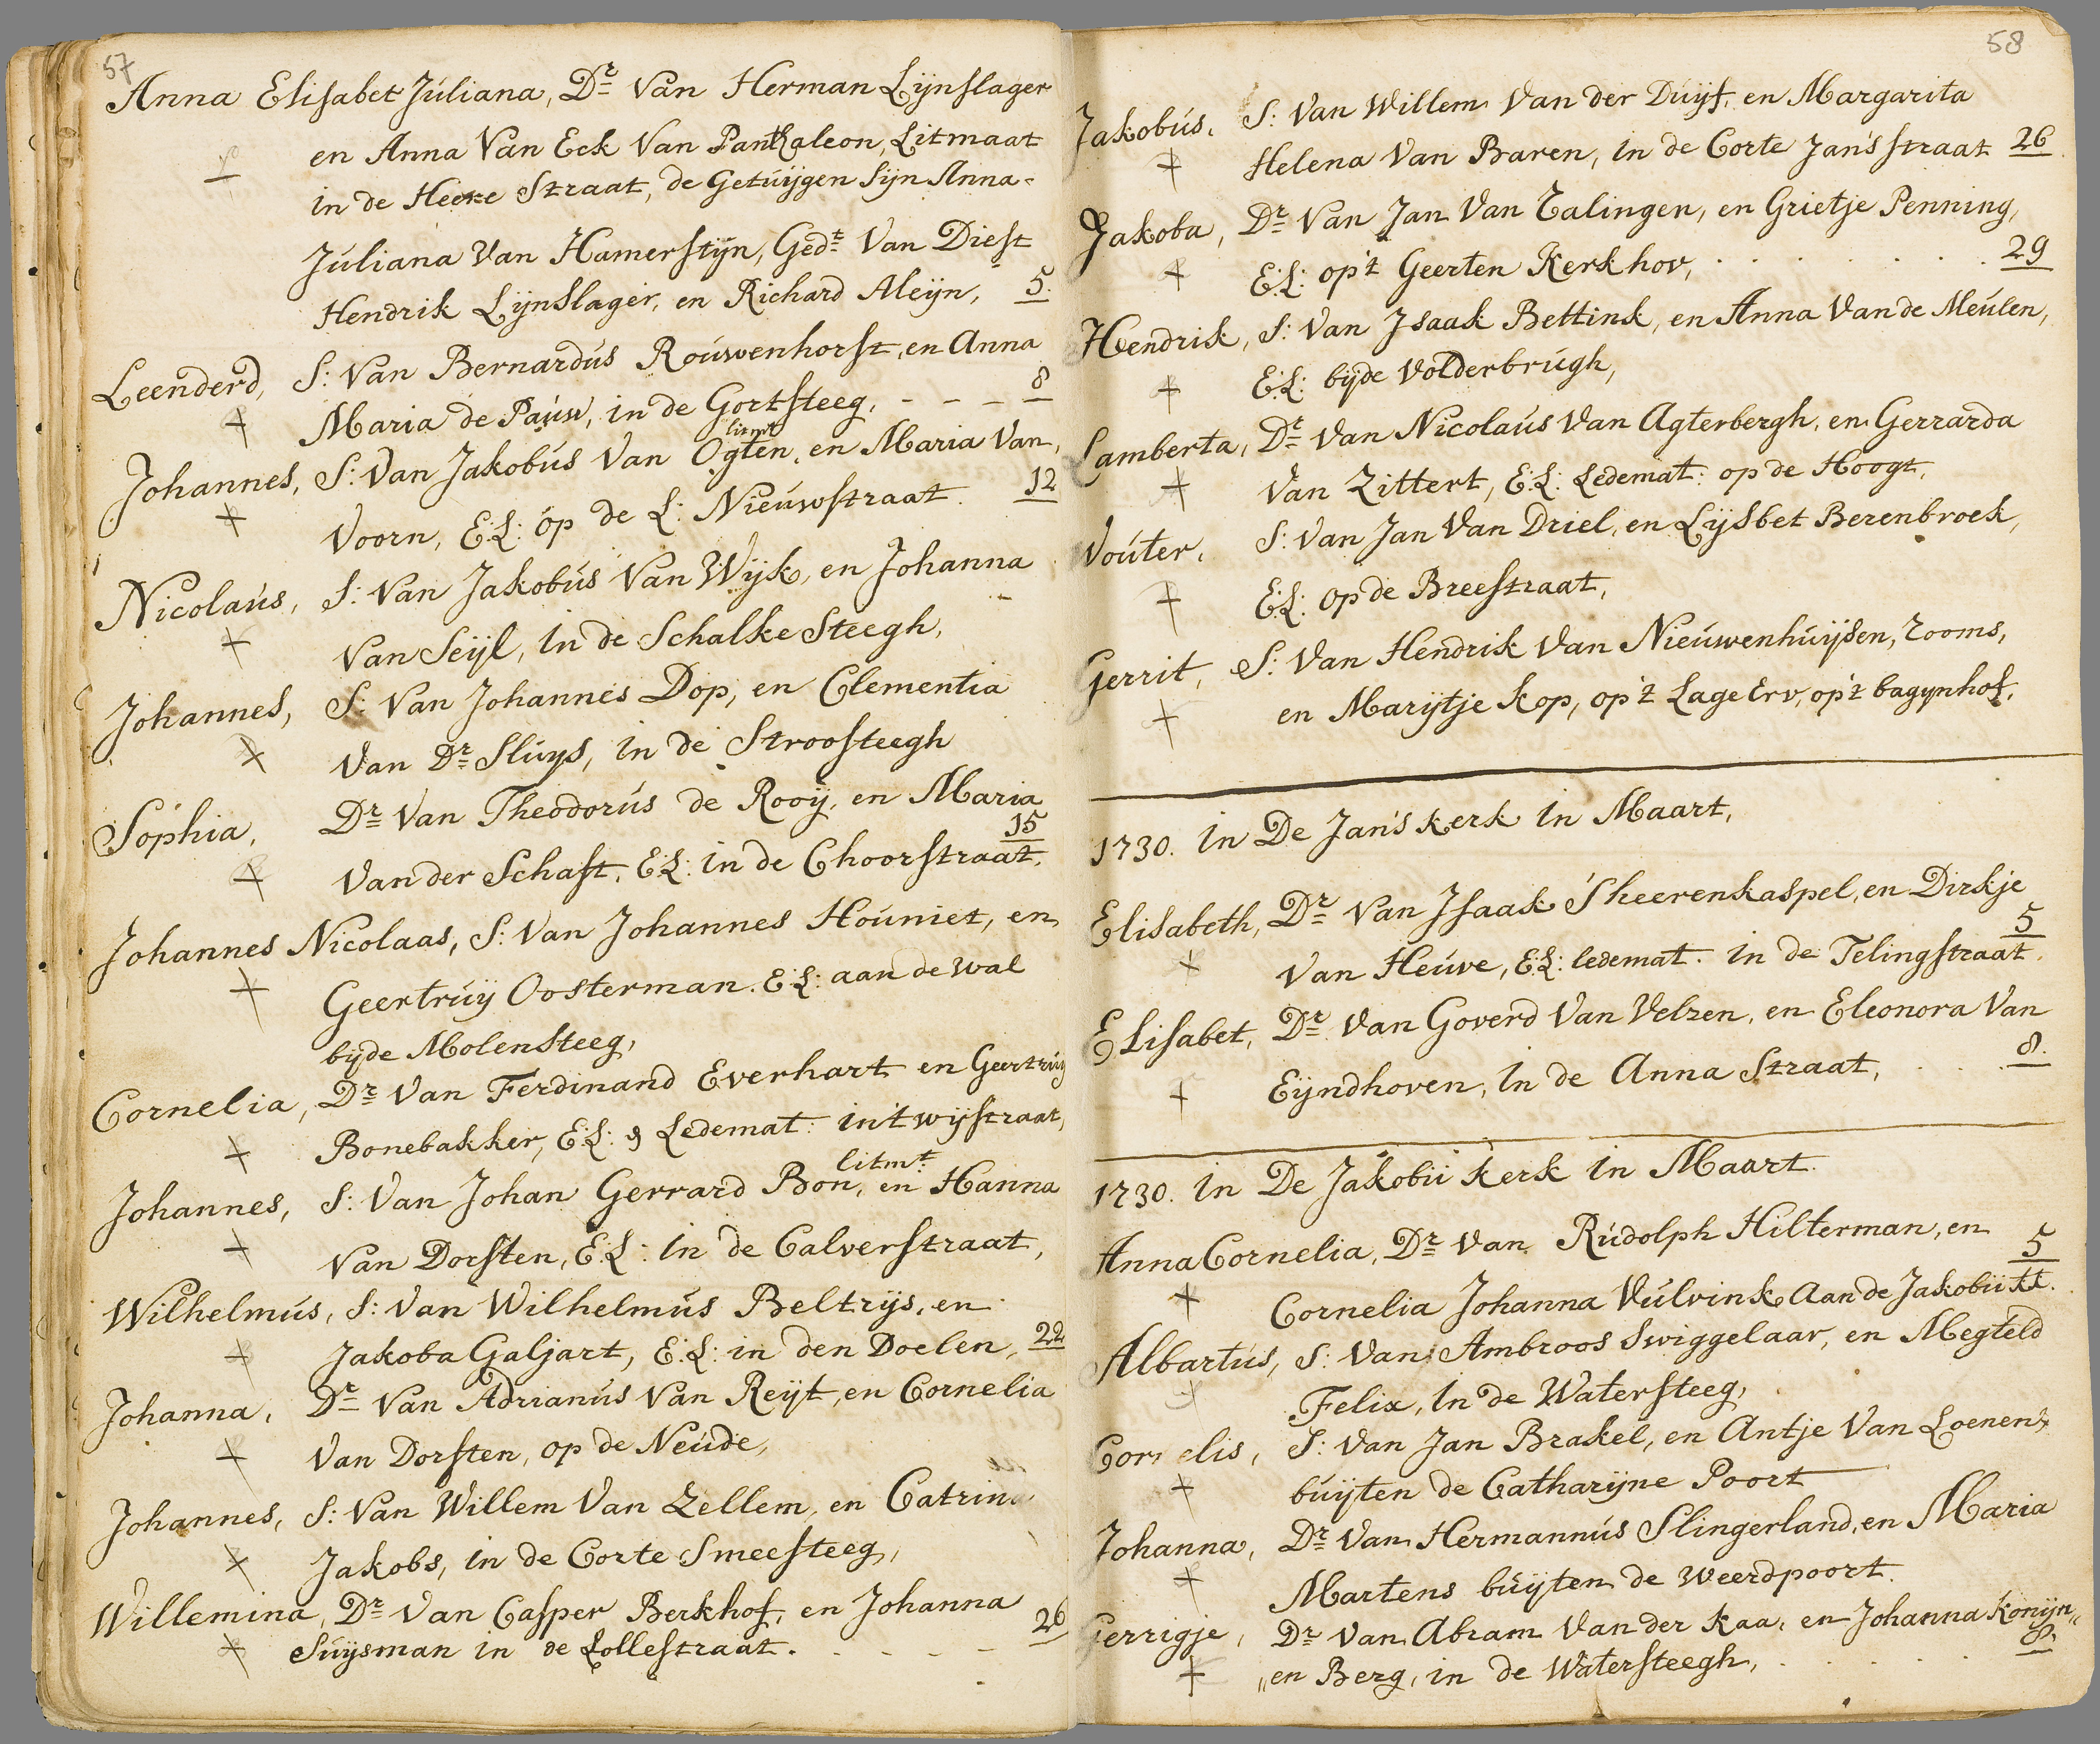 57
Anna Elisabet Juliana, Dr Van Herman Lijnslager
en Anna Van Eck Van Panthaleon, Litmaat
in de Heere Straat, de Getuijgen Sijn Anna
Juliana Van Hamerstijn, Gedt Van Diest
Hendrik Lijnslager, en Richard Aleijn, 5.
Leenderd, S: Van Bernardus Rouwenhorst, en Anna
Maria de Pauw, in de Gortsteeg, - - - 8
litmt
Johannes, S: Van Jakobus Van Ogten, en Maria Van,
Voorn, E:L: op de L: Nieuwstraat. 12
Nicolaus, S: Van Jakobus Van Wijk, en Johanna
Van Seijl, in de Schalke Steegh,
Johannes, S: Van Johannes Dop, en Clementia
Van Dr Sluys, in de Stroosteegh
Sophia, Dr Van Theodorus de Rooij, en Maria
Van der Schaft, E:L: in de Choorstraat. 15
Johannes Nicolaas, S: Van Johannes Houniet, en
Geertruij Oosterman. E:L: aan de wal
bijde Molensteeg,
Cornelia, Dr Van Ferdinand Everhart en Geertruij
Bonebakker, E:L: & Ledemat: in't wijstraat,
litmt
Johannes, S: Van Johan Gerrard Bon, en Hanna
Van Dorsten, E:L: in de Calverstraat,
Wilhelmus, S: Van Wilhelmus Beltrijs, en
Jakoba Galjart, E:L: in den Doelen, 22
Johanna, Dr Van Adrianus Van Reijt, en Cornelia
Van Dorsten, op de Neude,
Johannes, S: Van Willem Van Zellem, en Catrina
Jakobs, in de Corte Smeesteeg,
Willemina, Dr Van Casper Berkhof, en Johanna
Suijsman in de Lollestraat. - - - 26
58
Jakobus, S: Van Willem Van der Duijf, en Margarita
Helena Van Baren, in de Corte Jan's straat 26
Jakoba, Dr Van Jan Van Talingen, en Grietje Penning,
E:L: op't Geerten Kerkhov, . . . . . . 29
Hendrik, S: Van Isaak Bettink, en Anna Van de Meulen,
E:L: bijde Volderbrugh,
Lamberta, Dr Van Nicolaus Van Agterbergh, en Gerrarda
Van Zittert, E:L: Ledemat: op de Hoogt,
Wouter, S: Van Jan Van Driel, en Lijsbet Berenbroek,
E:L: op de Breestraat,
Gerrit, S: Van Hendrik Van Nieuwenhuijsen, rooms,
en Marijtje kop, op't Lage Erv, op't bagijnhof,
1730. in De Jan's kerk in Maart,
Elisabeth, Dr Van Isaak S'heerenkaspel, en Dirkje
Van Heuve, E:L: ledemat. in de Telingstraat. 5
Elisabet, Dr Van Goverd Van Velzen, en Eleonora Van
Eijndhoven, in de Anna Straat, . . . 8.
1730. in De Jakobii kerk in Maart.
Anna Cornelia, Dr Van Rudolph Hilterman, en
Cornelia Johanna Vulvink aan de Jakobii kk. 5
Albartus, S: Van Ambroos Swiggelaar, en Megteld
Felix, in de Watersteeg,
Cornelis, S: Van Jan Brakel, en Antje Van Loenen,
buijten de Catharijne Poort
Johanna, Dr Van Hermannus Slingerland, en Maria
Martens buijten de Weerdpoort.
Gerrigje, Dr Van Abram Van der kaa, en Johanna Konijn„
„en Berg, in de Watersteegh, . . . . . 8.